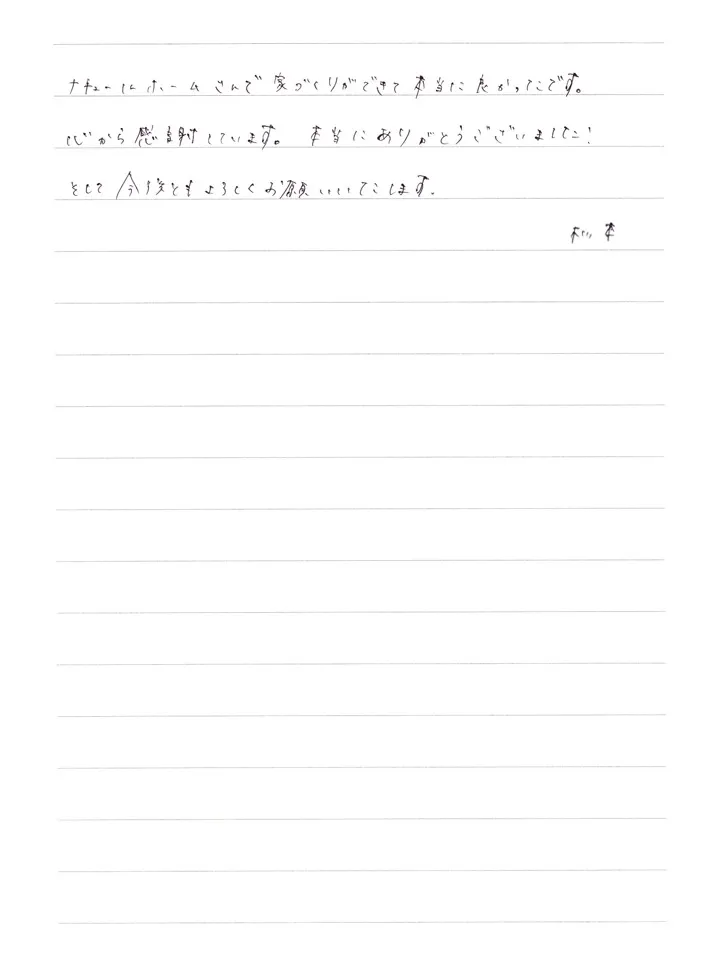 ナチュールホームさんで家づくりができて本当に良かったです。
心から感謝しています。 本当にありがとうございました!
そして今後ともよろしくお願いいたします。